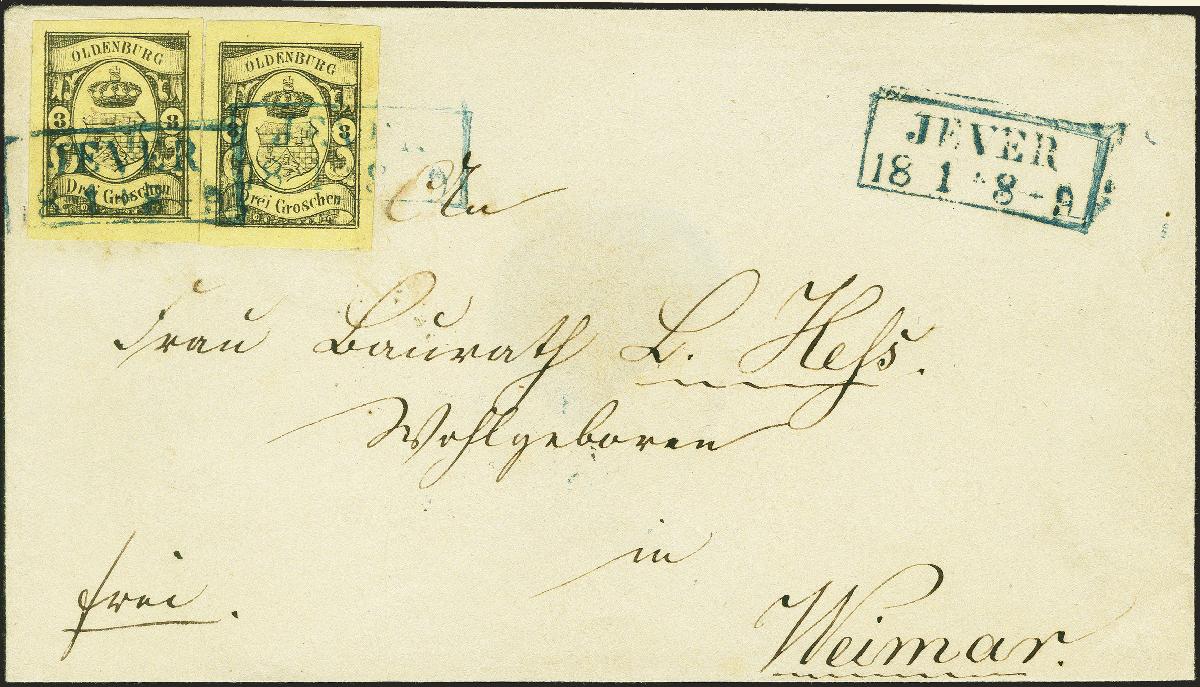 OLDENBURG
3 3
Drei Groschen
OLDENBURG
3 3
Drei Groschen
JEVER
18 1
JEVER
18 1 * 8-9
An
Frau Baurath L. Heſs.
Wohlgeboren
in
Weimar.
frei.